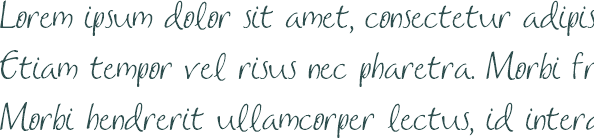 Lorem ipsum dolor sit amet, consectetur adipis
Etiam tempor vel risus nec pharetra. Morbi fr
Morbi hendrerit ullamcorper lectus, id intera